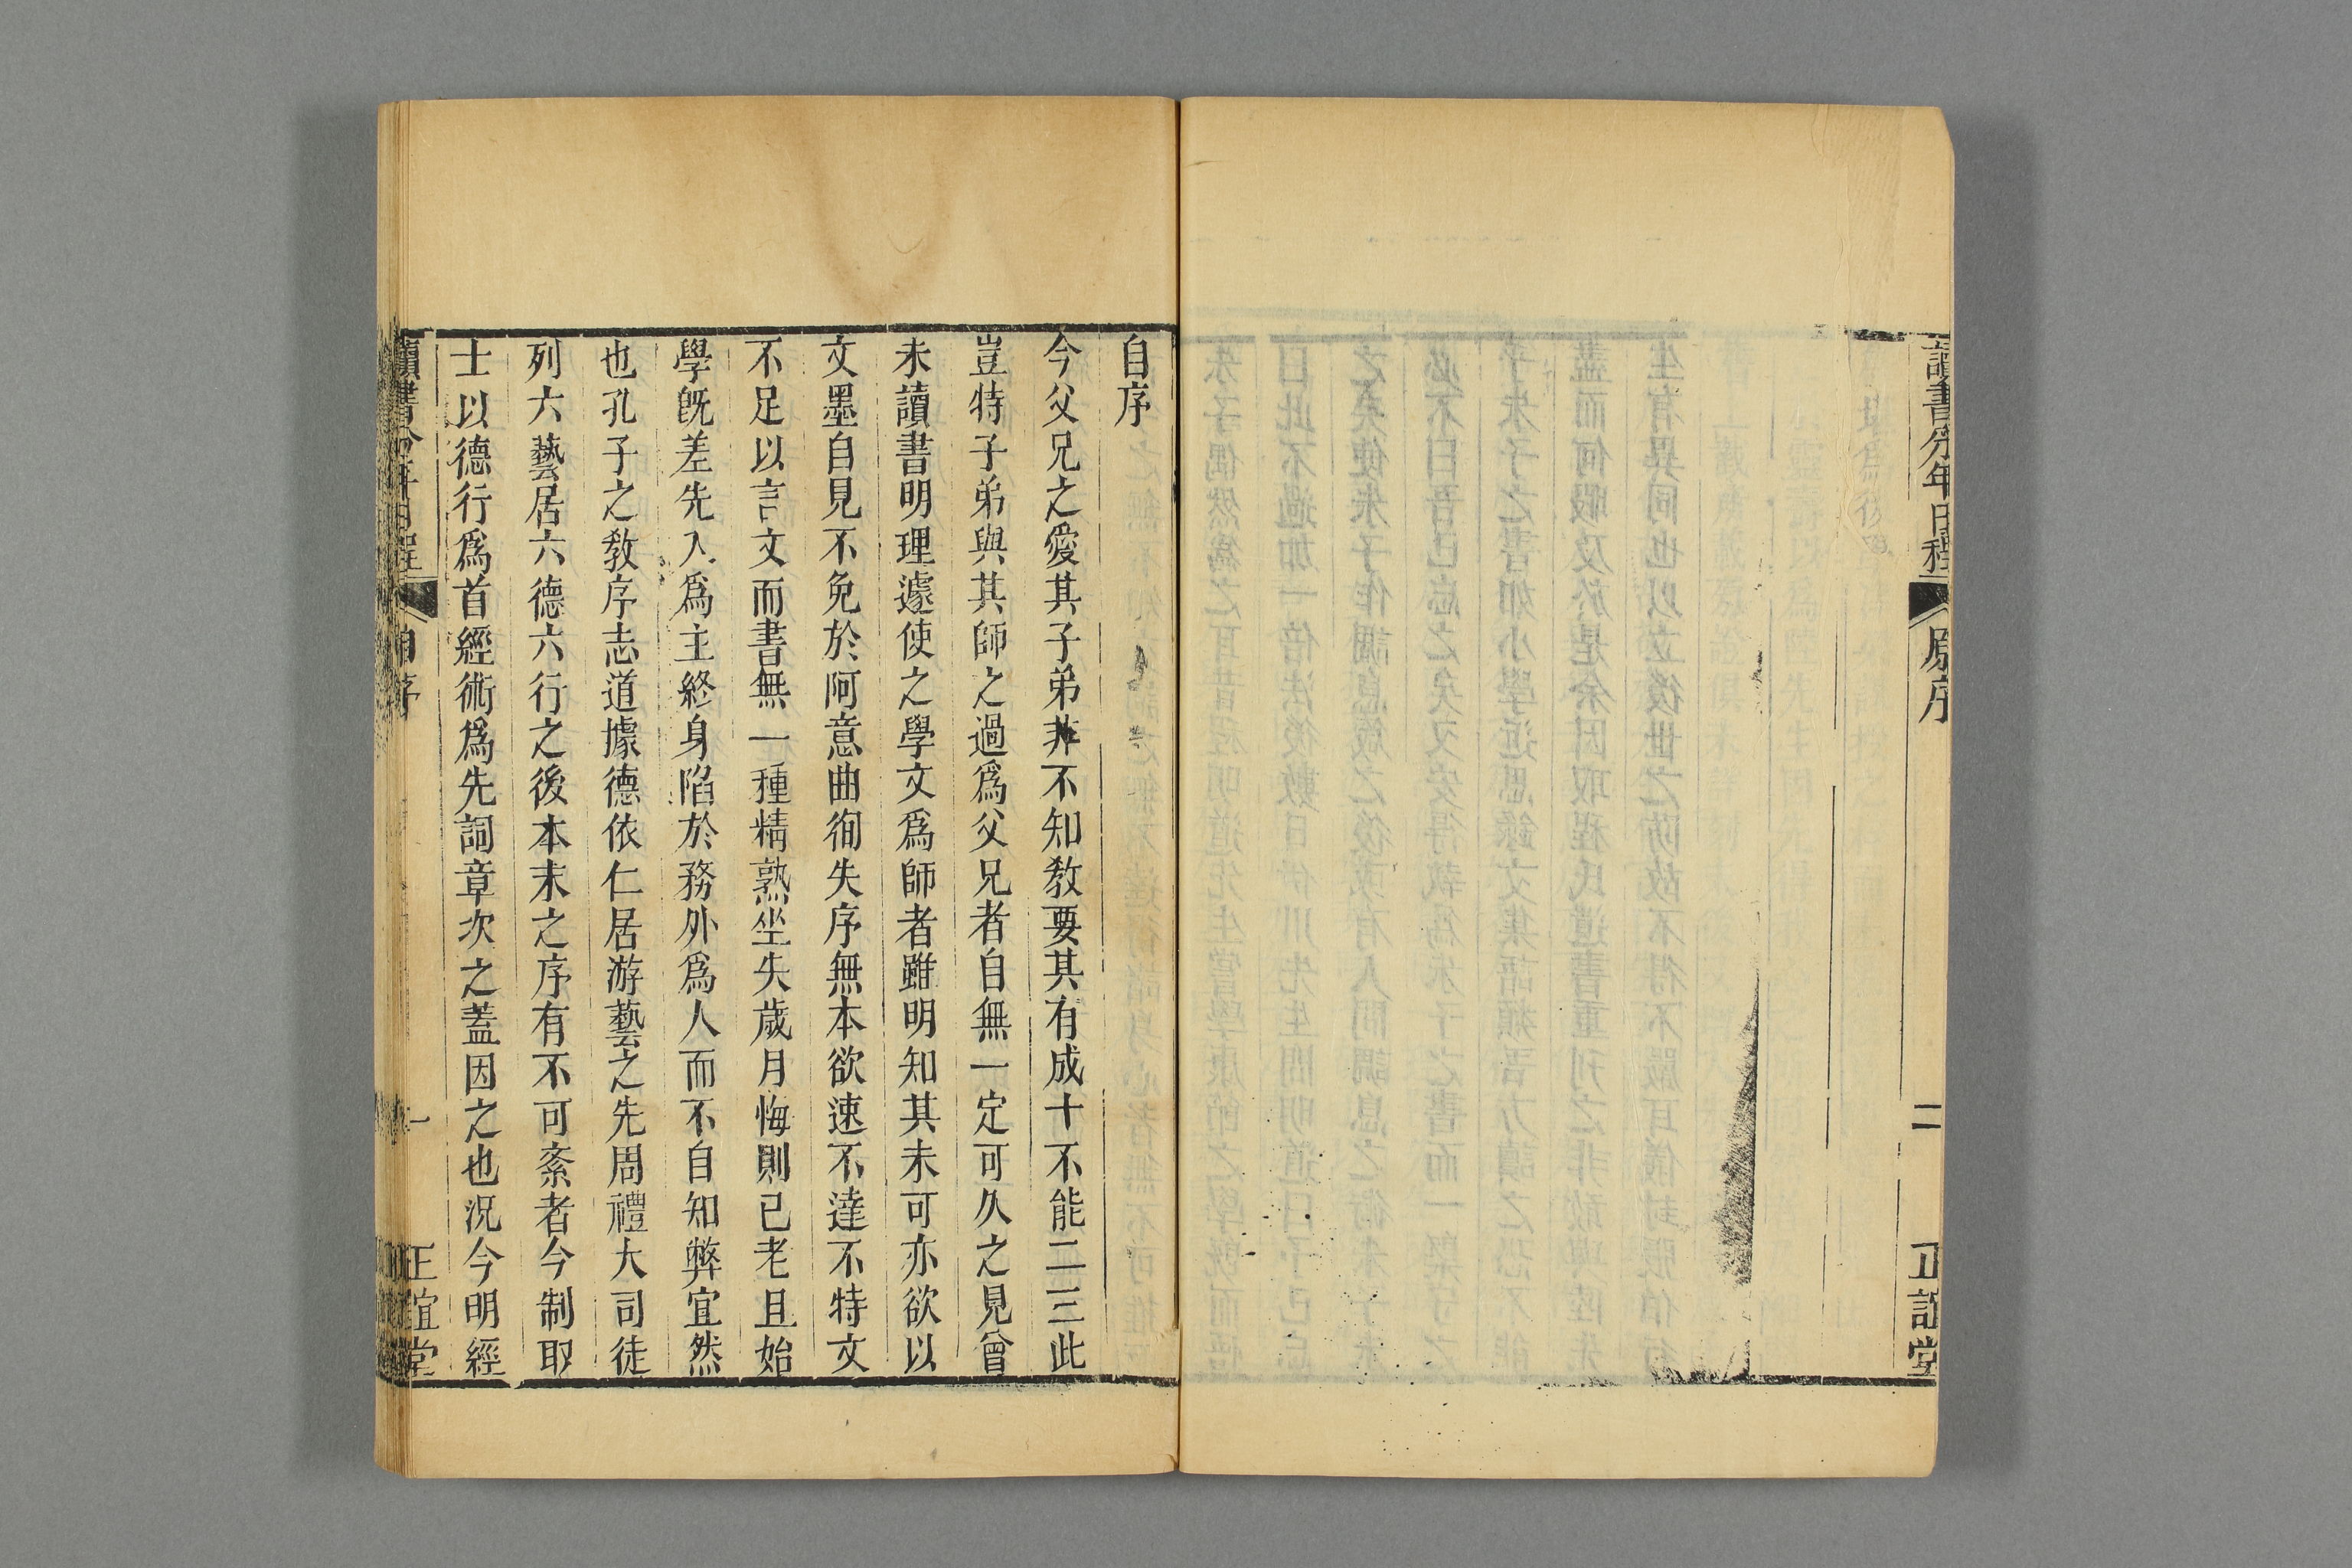 讀書分年日程
原序
二
正誼堂
自序
今父兄之愛其子弟非不知教要其有成十不能二三此
豈特子弟與其師之過爲父兄者自無一定可久之見曾
未讀書明理遽使之學文爲師者雖明知其未可亦欲以
文墨自見不免於阿意曲徇失序無本欲速不達不特文
不足以言文而書無一種精熟坐失歲月悔則已老且始
學旣差先入爲主終身陷於務外爲人而不自知弊宜然
也孔子之教序志道據德依仁居游藝之先周禮大司徒
列六藝居六德六行之後本末之序有不可紊者今制取
士以德行爲首經術爲先詞章次之蓋因之也況今明經
讀書分年日程
自序
一
正誼堂